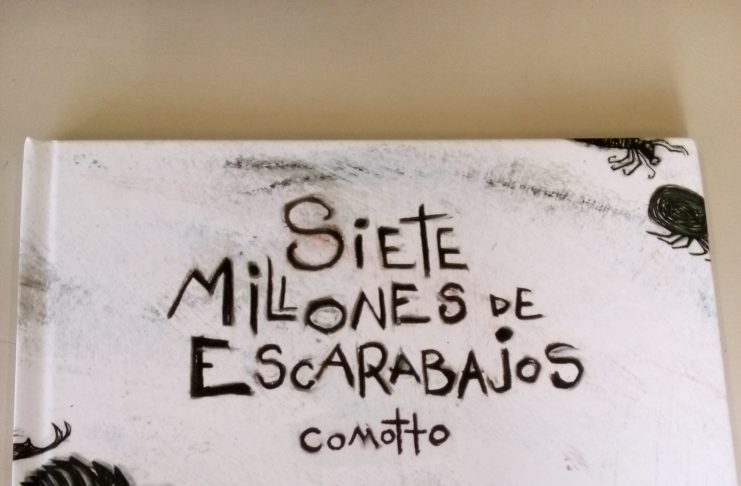 SiETE
MiLLONES DE
ESCARABAjOS
COMOTTO